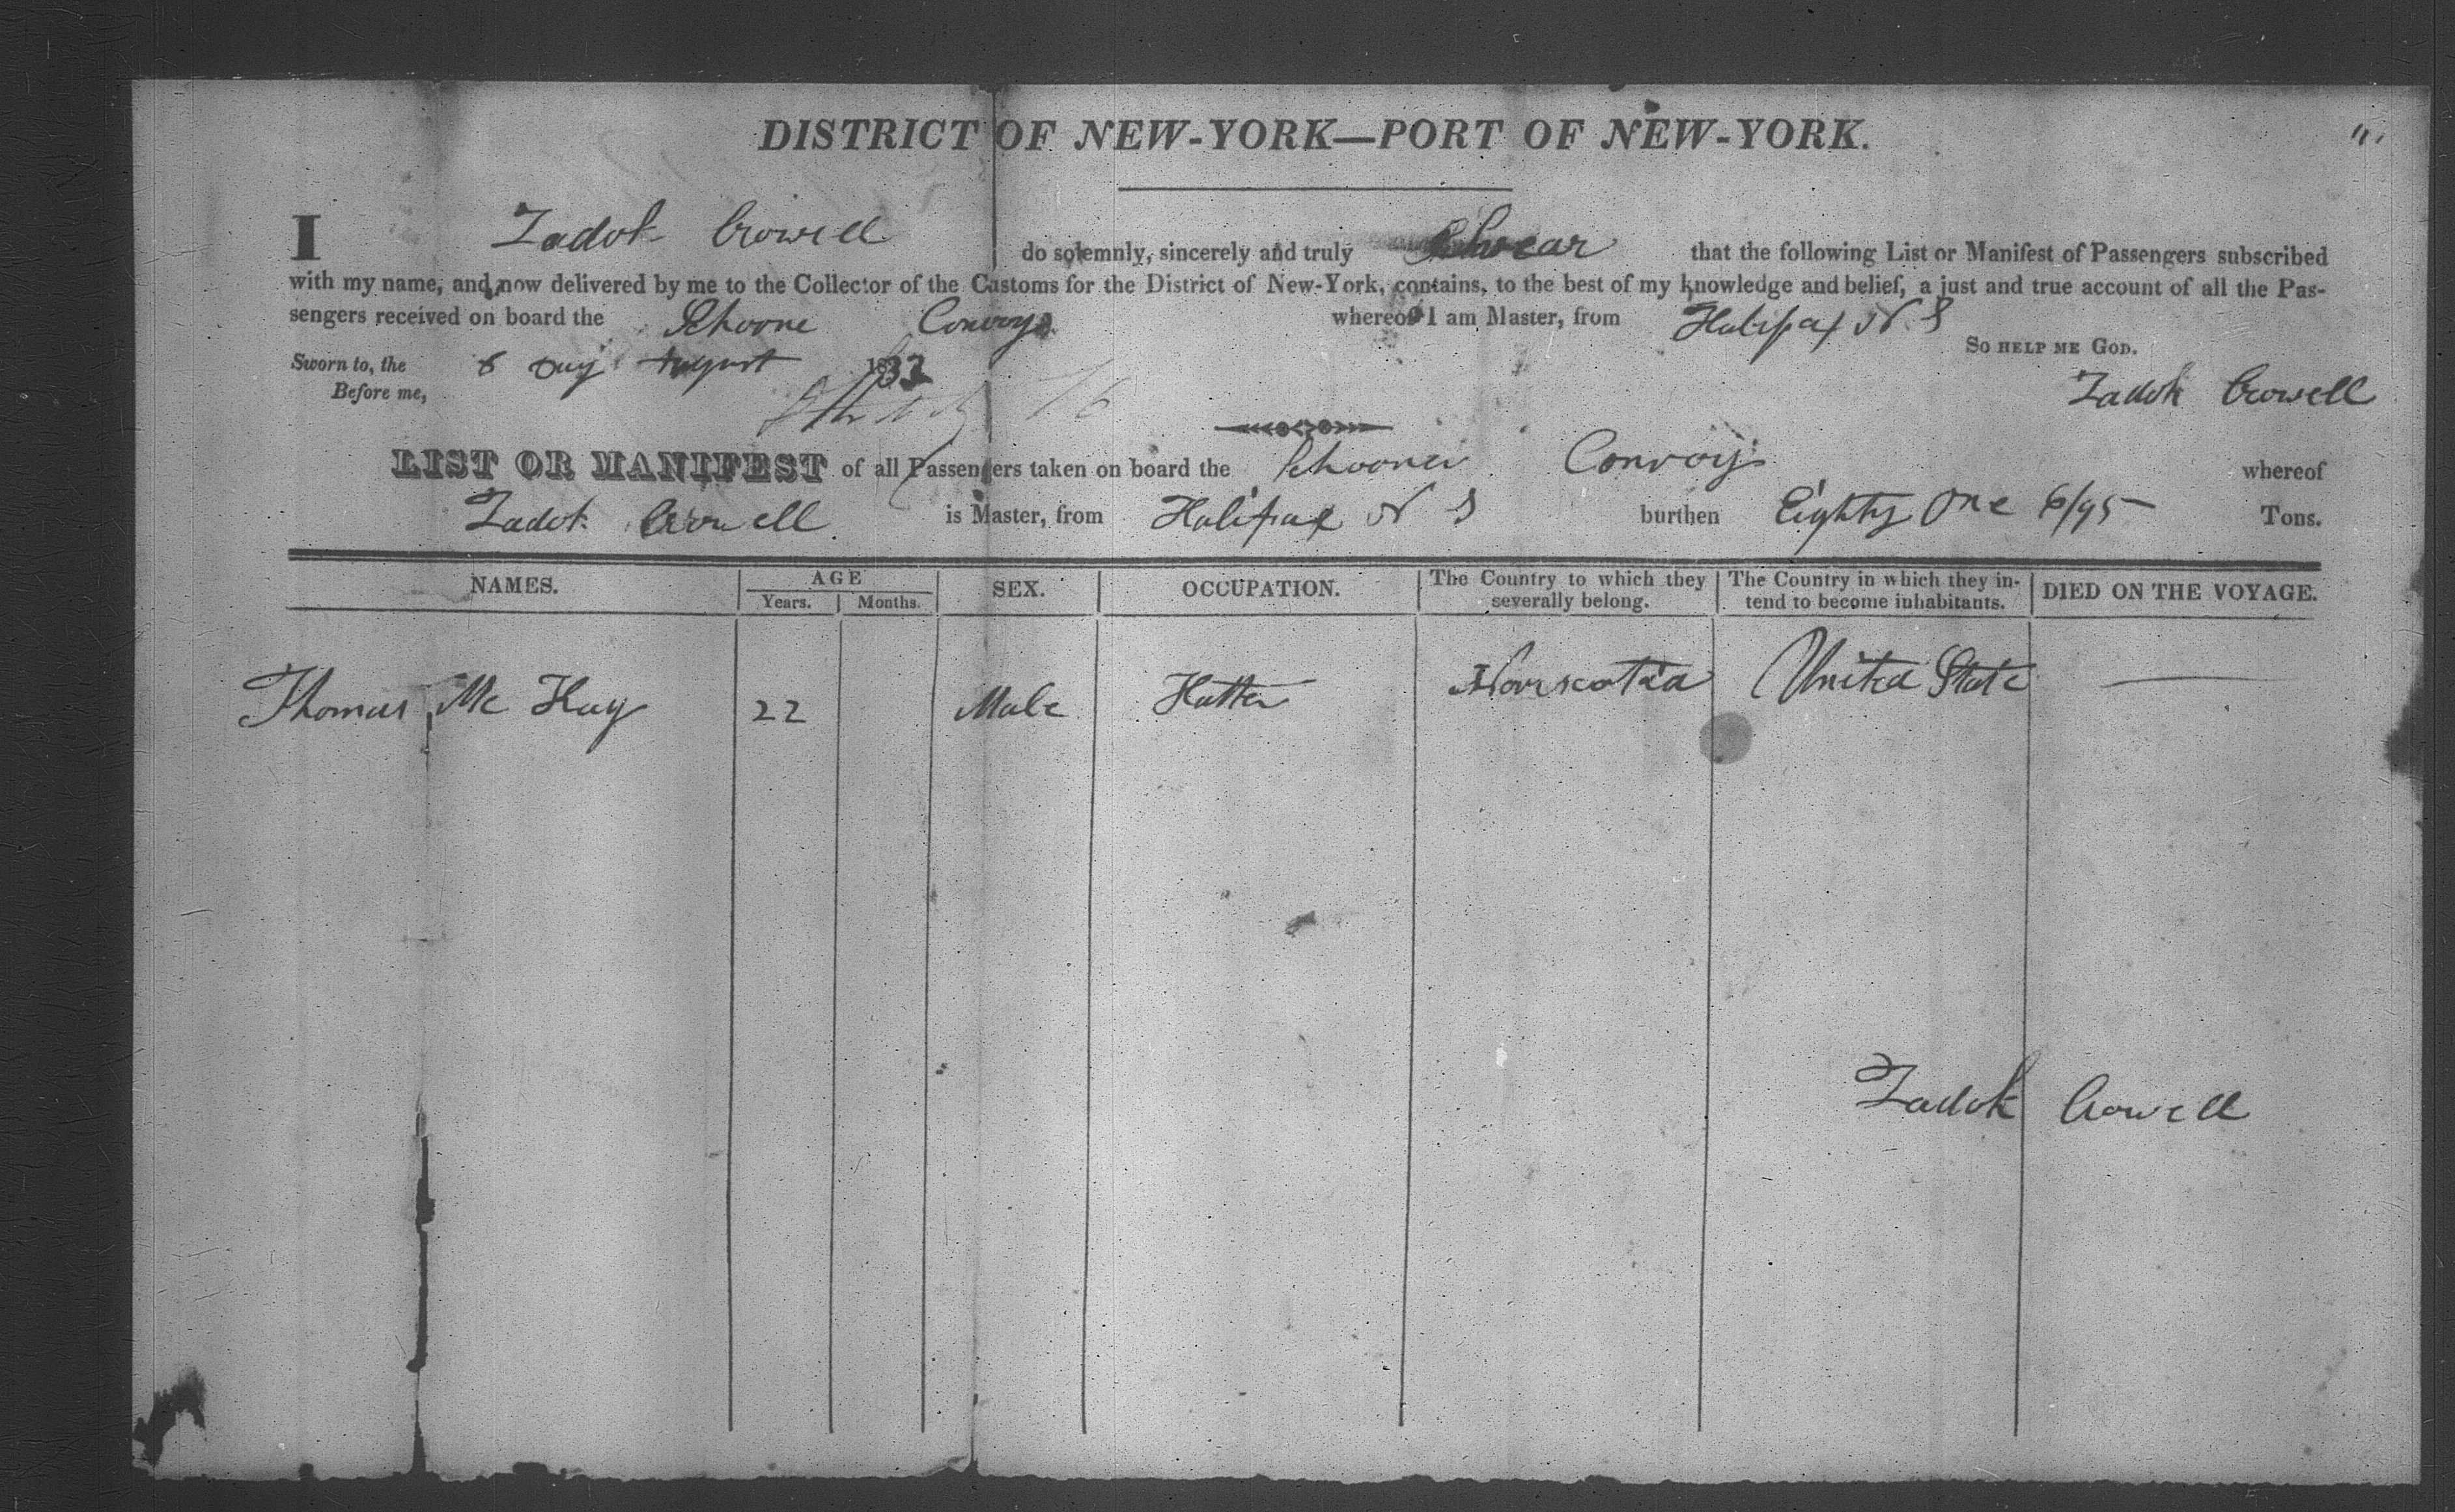 DISTRICT OF NEW-YORK—PORT OF NEW-YORK.
I Zadok Crowell do solemnly, sincerely and truly Swear that the following List or Manifest of Passengers subscribed
with my name, and now delivered by me to the Collector of the Customs for the District of New-York, contains, to the best of my knowledge and belief, a just and true account of all the Pas-
sengers received on board the Schoone Convoy whereof I am Master, from Halifax N S
SO HELP ME GOD.
Sworn to, the 8 Day August 1832
Before me,
Zadok Crowell
LIST OR MANIFEST of all Passengers taken on board the Schooner Convoy whereof
Zadok Crowell is Master, from Halifax N S burthen Eighty One 6/95 Tons.
NAMES. AGE Years. Months. SEX. OCCUPATION. The Country to which they severally belong. The Country in which they in- tend to become inhabitants. DIED ON THE VOYAGE.
Thomas Mc Hay 22 Male Hatter Novscotia United State —
Zadok Crowell